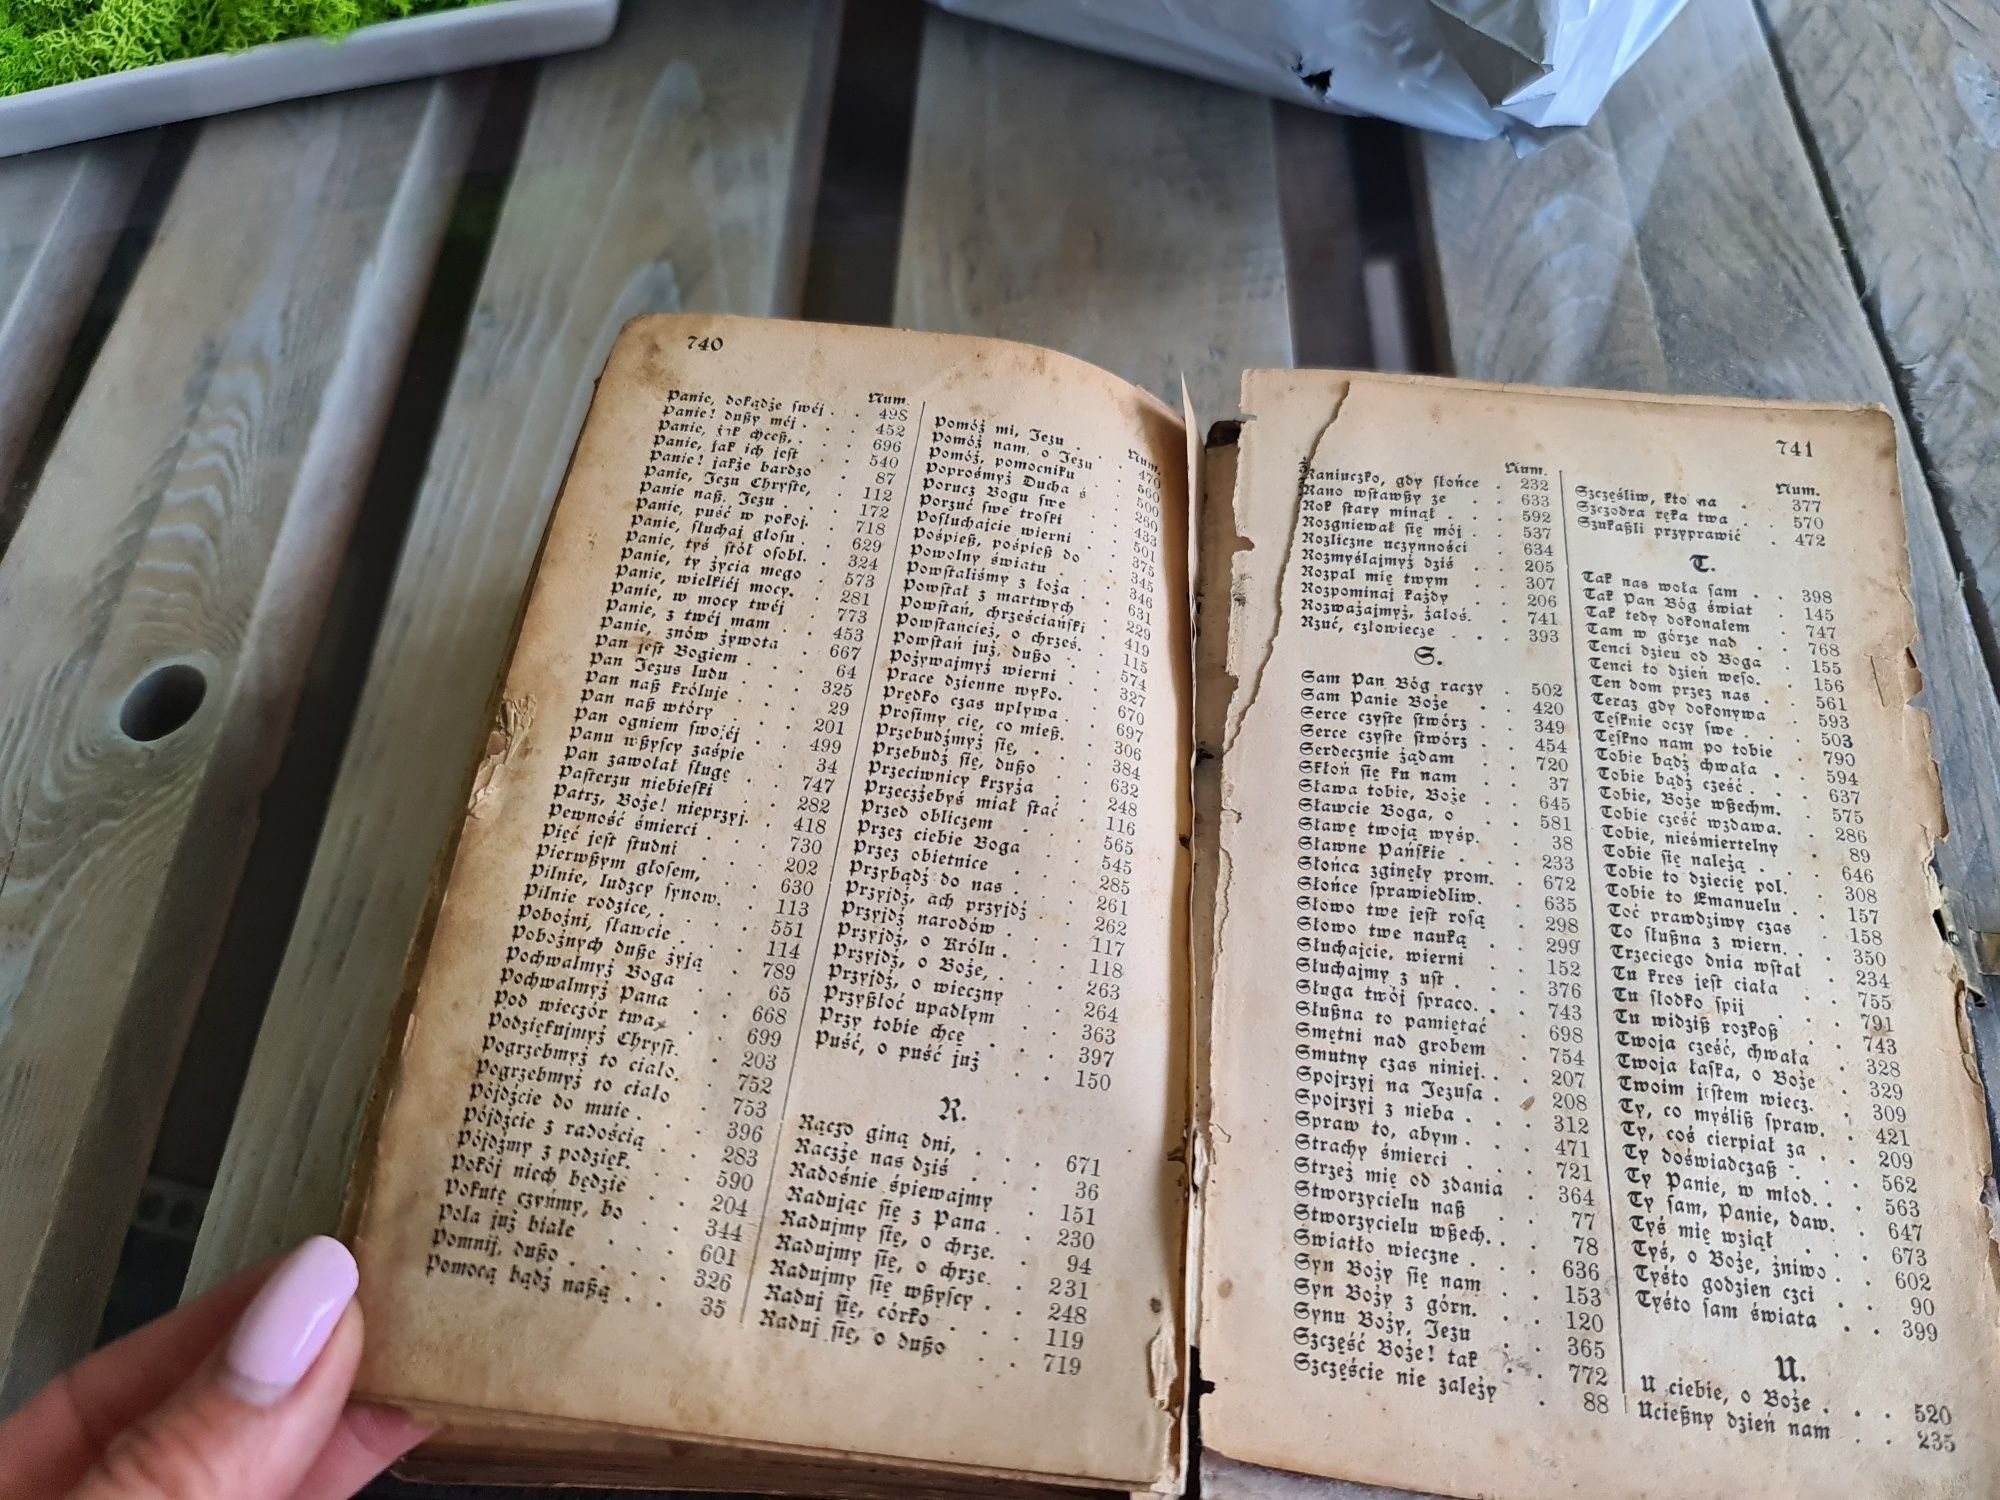 740
Num.
Panie, dokądże swój . . 498
Panie! dußy mój . . . 452
Panie, jak chceß, . . . 696
Panie, jak ich jest . . 540
Panie! jakże bardzo . . 87
Panie, Jezu Chryste, . 112
Panie naß, Jezu . . . 172
Panie, puść w pokoj. . 718
Panie, słuchaj głosu . . 629
Panie, tyś stół osobl. . 324
Panie, ty życia mego . 573
Panie, wielkiéj mocy. . 281
Panie, w mocy twéj . . 773
Panie, z twéj mam . . 453
Panie, znów żywota . . 667
Pan jest Bogiem . . . 64
Pan Jezus ludu . . . 325
Pan naß króluje . . . 29
Pan naß wtóry . . . 201
Pan ogniem swojéj . . 499
Panu wßyscy zaśpie . . 34
Pan zawołał sługę . . 747
Pasterzu niebieski . . 282
Patrz, Boże! nieprzyj. . 418
Pewność śmierci . . . 730
Pięć jest studni . . . 202
Pierwßym głosem, . . 630
Pilnie, ludzcy synow. . 113
Pilnie rodzice, . . . 551
Pobożni, sławcie . . . 114
Pobożnych duße żyją . 789
Pochwalmyż Boga . . 65
Pochwalmyż Pana . . 668
Pod wieczór twa, . . 699
Podziękujmyż Chryst. . 203
Pogrzebmyż to ciało. . 752
Pogrzebmyż to ciało . 753
Pójdźcie do mnie . . . 396
Pójdźcie z radością . . 283
Pójdźmy z podzięk. . . 590
Pokój niech będzie . . 204
Pokutę czyńmy, bo . . 344
Pola już białe . . . 601
Pomnij, dußo . . . . 326
Pomocą bądź naßą . . 35
Num.
Pomóż mi, Jezu . . . 470
Pomóż nam, o Jezu . . 560
Pomóż, pomocniku . . 500
Poprośmyż Ducha ś . . 260
Porucz Bogu swe . . 433
Porzuć swe troski . . 501
Posłuchajcie wierni . . 375
Pospieß, pospieß do . . 345
Powolny światu . . . 346
Powstaliśmy z łoża . . 631
Powstał z martwych . . 229
Powstań, chrześciański . 419
Powstańcież, o chrześ. . 115
Powstań już, dußo . . 574
Pożywajmyż wierni . . 327
Prace dzienne wyko. . 670
Prędko czas upływa . . 697
Prosimy cię, co mieß. . 306
Przebudźmyż się, . . 384
Przebudź się, dußo . . 632
Przeciwnicy krzyża . . 248
Przeczżebyś miał stać . 116
Przed obliczem . . . 565
Przez ciebie Boga . . 545
Przez obietnice . . . 285
Przybądź do nas . . . 261
Przyjdź, ach przyjdź . 262
Przyjdź narodów . . . 117
Przyjdź, o Królu . . . 118
Przyjdź, o Boże, . . . 263
Przyjdź, o wieczny . . 264
Przyßłoć upadłym . . 363
Przy tobie chcę . . . 397
Puść, o puść już . . . 150
R.
Rączo giną dni, . . . 671
Raczże nas dziś . . . 36
Radośnie śpiewajmy . 151
Radując się z Pana . . 230
Radujmy się, o chrze. . 94
Radujmy się, o chrze. . 231
Radujmy się wßyscy . . 248
Raduj się, córko . . . 119
Raduj się, o dußo . . 719
741
Num.
Raniuczko, gdy słońce . 232
Rano wstawßy ze . . 633
Rok stary minął . . . 592
Rozgniewał się mój . . 537
Rozliczne uczynności . 634
Rozmyślajmyż dziś . . 205
Rozpal mię twym . . 307
Rozpominaj każdy . . 206
Rozważajmyż, żałoś. . 741
Rzuć, człowiecze . . . 393
S.
Sam Pan Bóg raczy . 502
Sam Panie Boże . . 420
Serce czyste stwórz . . 349
Serce czyste stwórz . . 454
Serdecznie żądam . . 720
Skłoń się ku nam . . 37
Sława tobie, Boże . . 645
Sławcie Boga, o . . . 581
Sławę twoją wyśp. . . 38
Sławne Pańskie . . . 233
Słońca zginęły prom. . 672
Słońce sprawiedliw. . 635
Słowo twe jest rosą . . 298
Słowo twe nauką . . 299
Słuchajcie, wierni . . 152
Słuchajmy z ust . . . 376
Sługa twój spraco. . . 743
Słußna to pamiętać . . 698
Smętni nad grobem . . 754
Smutny czas niniej. . . 207
Spojrzyj na Jezusa . . 208
Spojrzyj z nieba . . . 312
Spraw to, abym . . . 471
Strachy śmierci . . . 721
Strzeż mię od zdania . 364
Stworzycielu naß . . 77
Stworzycielu wßech. . . 78
Światło wieczne . . . 636
Syn Boży się nam . . 153
Syn Boży z górn. . . 120
Synu Boży, Jezu . . 365
Szczęść Boże! tak . . 772
Szczęście nie zależy . 88
Num.
Szczęśliw, kto na . . 377
Szczodra ręka twa . . 570
Szukaßli przyprawić . 472
T.
Tak nas woła sam . . 398
Tak Pan Bóg świat . 145
Tak tedy dokonałem . 747
Tam w górze nad . . 768
Tenci dzień od Boga . 155
Tenci to dzień weso. . 156
Ten dom przez nas . . 561
Teraz gdy dokonywa . 593
Tęsknie oczy swe . . . 503
Tęskno nam po tobie . 790
Tobie bądź chwała . . 594
Tobie bądź cześć . . . 637
Tobie, Boże wßechm. . 575
Tobie cześć wzdawa. . 286
Tobie, nieśmiertelny . 89
Tobie się należą . . . 646
Tobie to dziecię pol. . 308
Tobie to Emanuelu . . 157
Toć prawdziwy czas . 158
To słußna z wiern. . . 350
Trzeciego dnia wstał . 234
Tu kres jest ciała . . 755
Tu słodko śpij . . . 791
Tu widziß rozkoß . . 743
Twoja cześć, chwała . 328
Twoja łaska, o Boże . 329
Twoim jestem wiecz. . 309
Ty, co myśliß spraw. . 421
Ty, coś cierpiał za . . 209
Ty doświadczaß . . . 562
Ty Panie, w młod. . . 563
Ty sam, Panie, daw. . 647
Tyś mię wziął . . . 673
Tyś, o Boże, żniwo . . 602
Tyśto godzien czci . . 90
Tyśto sam świata . . 399
U.
U ciebie, o Boże . . . 520
Ucießny dzień nam . . 235